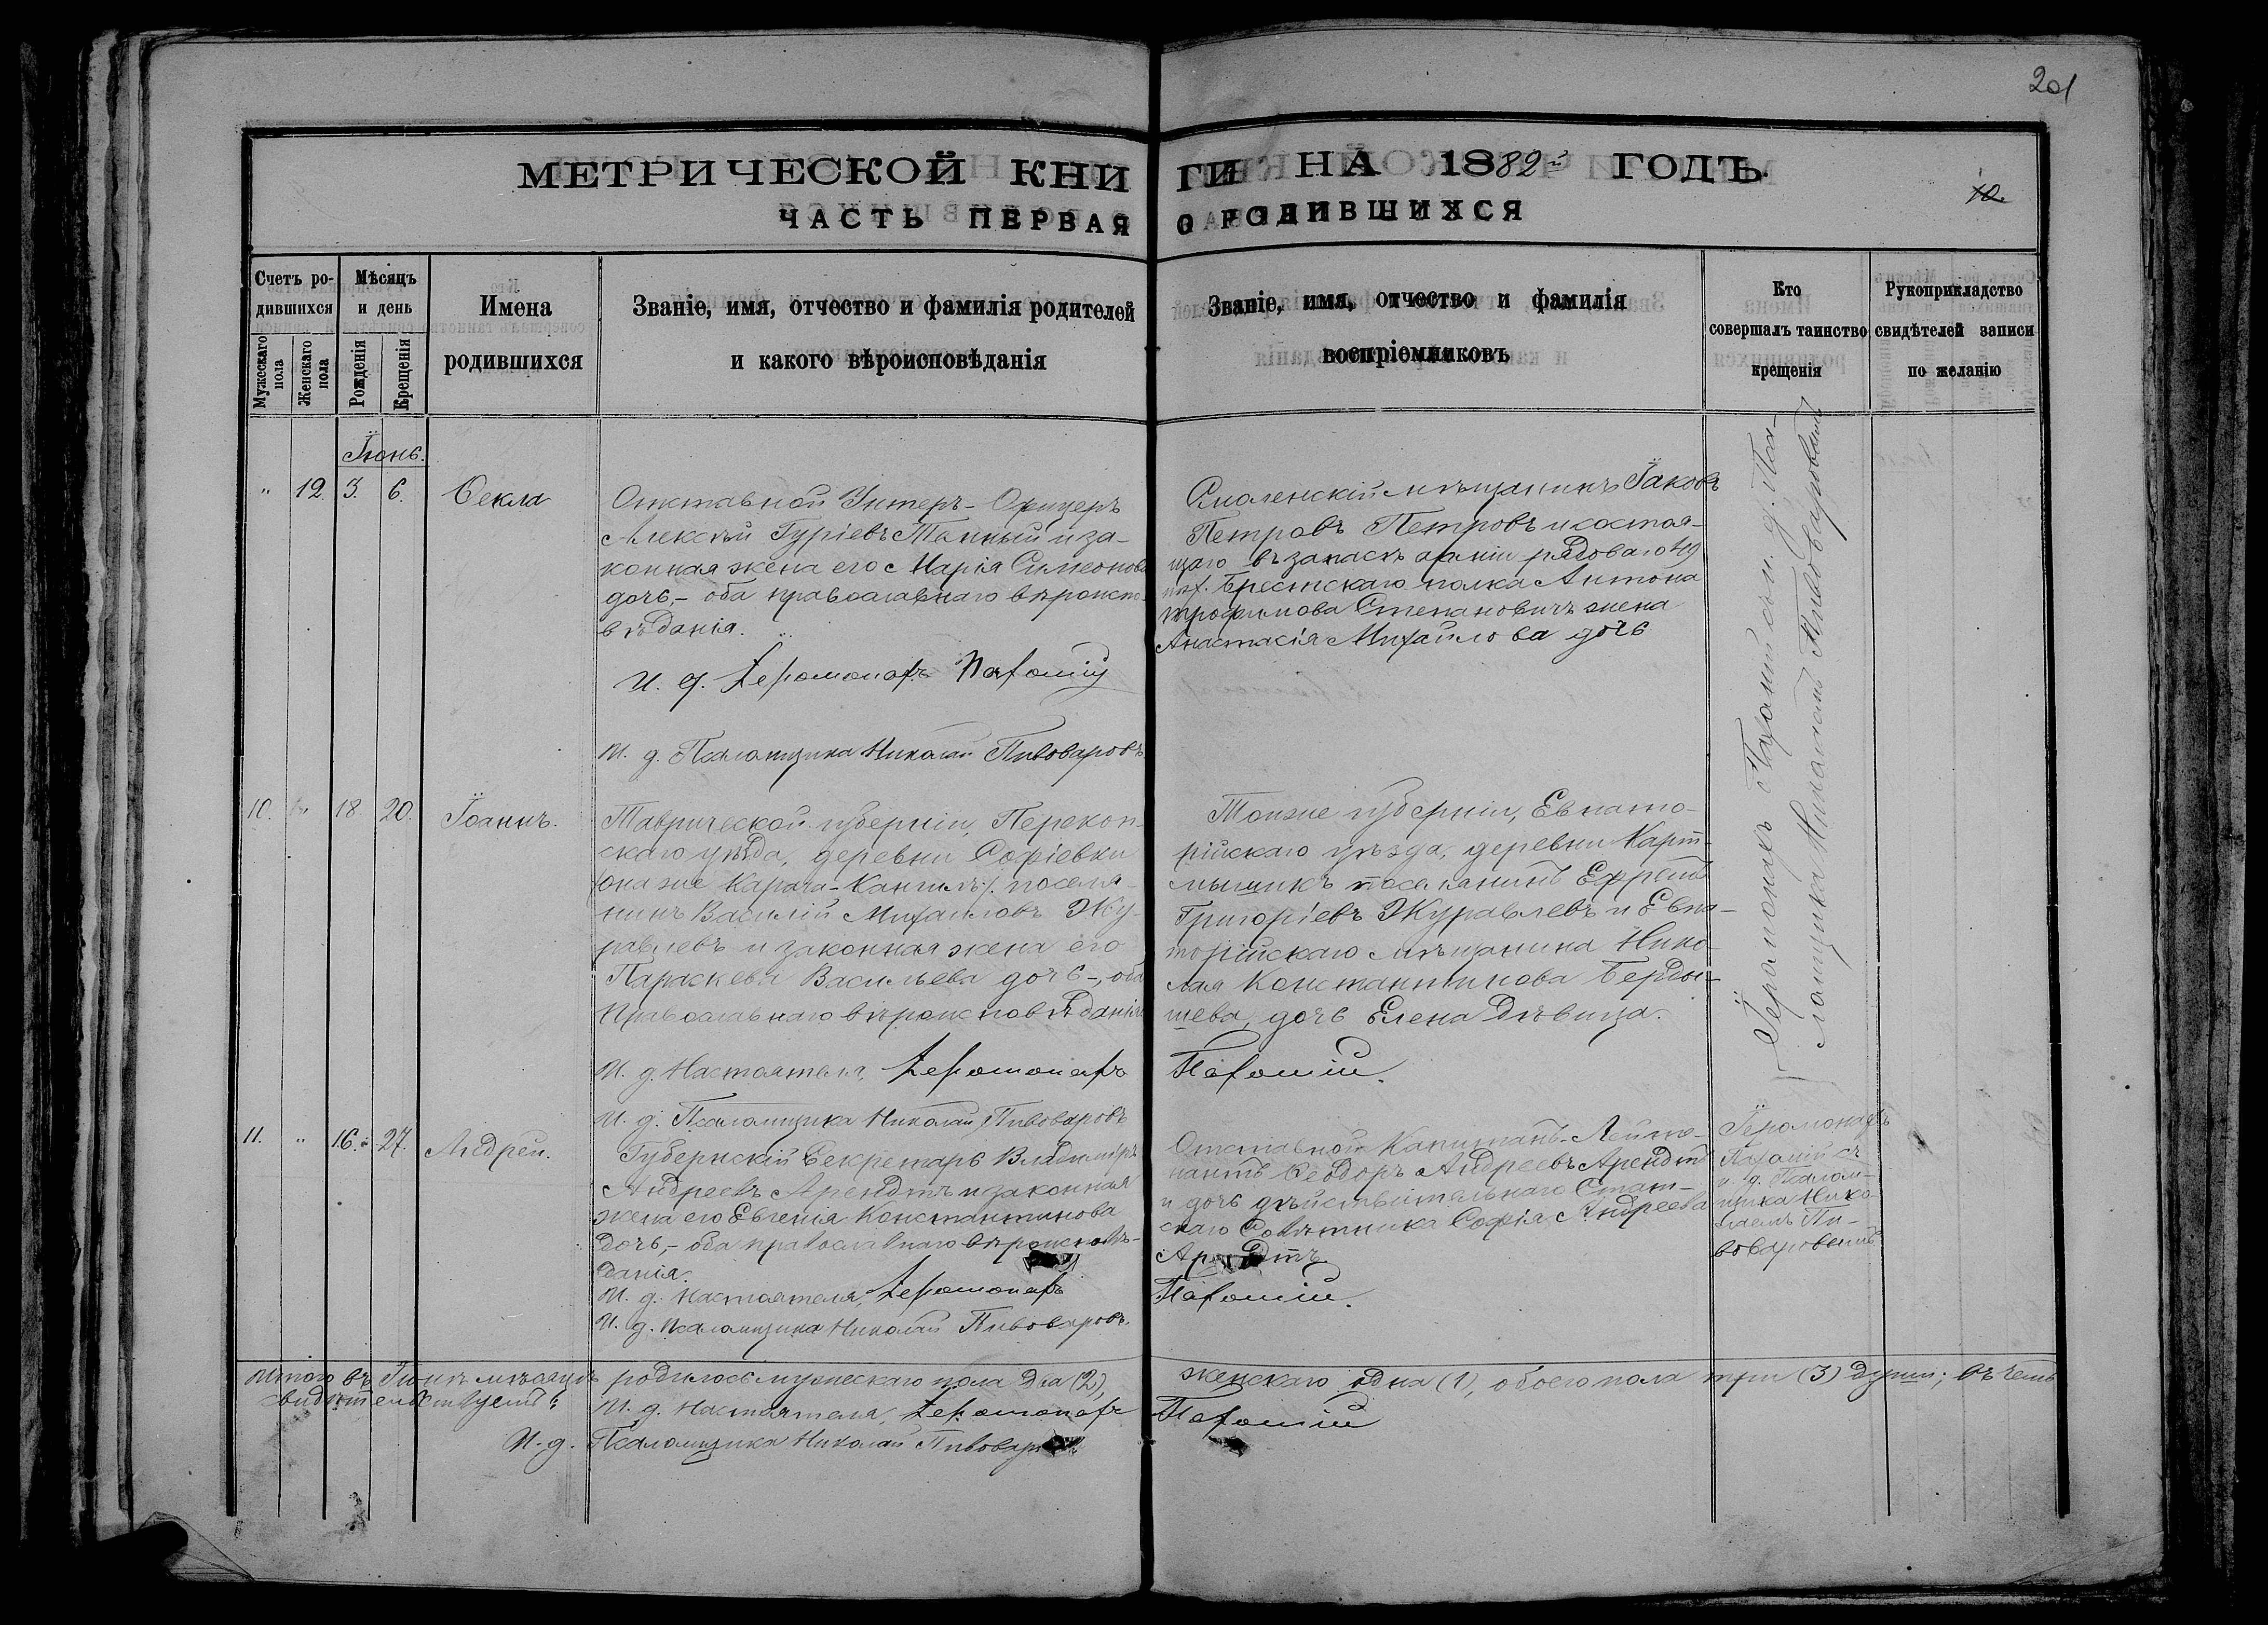 201
МЕТРИЧЕСКОЙ КНИГИ НА 1882й ГОДЪ.
10.
ЧАСТЬ ПЕРВАЯ О РОДИВШИХСЯ
Счетъ ро-
дившихся
Мужескаго пола
Женскаго пола
Мѣсяцъ
и день
Рожденія
Крещенія
Имена
родившихся
Званіе, имя, отчество и фамилія родителей
и какого вѣроисповѣданія
Званіе, имя, отчество и фамилія
воспріемниковъ
Кто
совершалъ таинство
крещенія
Рукоприкладство
свидѣтелей записи
по желанію
Іюнь.
" 12. 3. 6. Ѳекла
Отставной Унтеръ-Офицеръ
Алексѣй Гуріевъ и за-
конная жена его Марія Симеонова
дочь,- оба православнаго вѣроиспо-
вѣданія.
И. д. Іеромонахъ Пахомій
И. д. Псаломщика Николай Пивоваровъ
Смоленскій мѣщанинъ Іаковъ
Петровъ Петровъ и состоя-
щаго въ запасѣ арміи рядоваго 49
пѣх. Брестскаго полка Антона
Трофимова Степановичъ жена
Анастасія Михайлова дочь
Іеромонахъ Пахомій съ и. д. Пса-
ломщика Николаемъ Пивоваровымъ
10. " 18. 20. Іоаннъ.
Таврической губерніи, Перекоп-
скаго уѣзда, деревни Софіевки
/она же Карача-Кангилъ/. поселя-
нинъ Василій Михаиловъ Жу-
равлевъ и законная жена его
Параскева Васильева дочь-, оба
Православнаго вѣроисповѣданія
И. д. Настоятеля, Іеромонахъ Пахомій.
И. д. Псаломщика Николай Пивоваровъ
Тойже губерніи, Евпато-
рійскаго уѣзда, деревни Карт-
мышикъ поселянинъ Ефремъ
Григоріевъ Журавлевъ и Евпа-
торійскаго мѣщанина Нико-
лая Константинова
дочь Елена Дѣвица.
11. " 16. 27. Андрей.
Губернскій Секретарь Владиміръ
Андреевъ Арендтъ и законная
жена его Евгенія Константинова
дочь,- оба православнаго вѣроисповѣ-
данія.
И. д. Настоятеля, Іеромонахъ Пахомій.
И. д. Псаломщика Николай Пивоваровъ.
Отставной Капитанъ-Лейте-
нантъ Ѳеодоръ Андреевъ Арендтъ
и дочь дѣйствительнаго Стат-
скаго Совѣтника Софія Андреева
Арендтъ
Іеромонахъ
Пахомій съ
и. д. Псалом-
щика Нико-
лаемъ Пи-
воваровымъ
Итого въ Іюнѣ мѣсяцѣ родилось мужескаго пола два (2), женскаго одна (1), обоего пола три (3) души; въ чемъ
свидѣтельствуемъ: И. д. Настоятеля, Іеромонахъ Пахомій
И. д. Псаломщика Николай Пивоваровъ